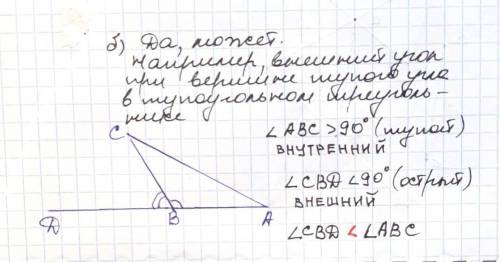 б) Да, может.
Например, внешний угол
при вершине тупого угла
в тупоугольном треуголь-
нике
C
∠ABC >90° (тупой)
ВНУТРЕННИЙ
∠CBD <90° (острый)
ВНЕШНИЙ
D B A
∠CBD < ∠ABC